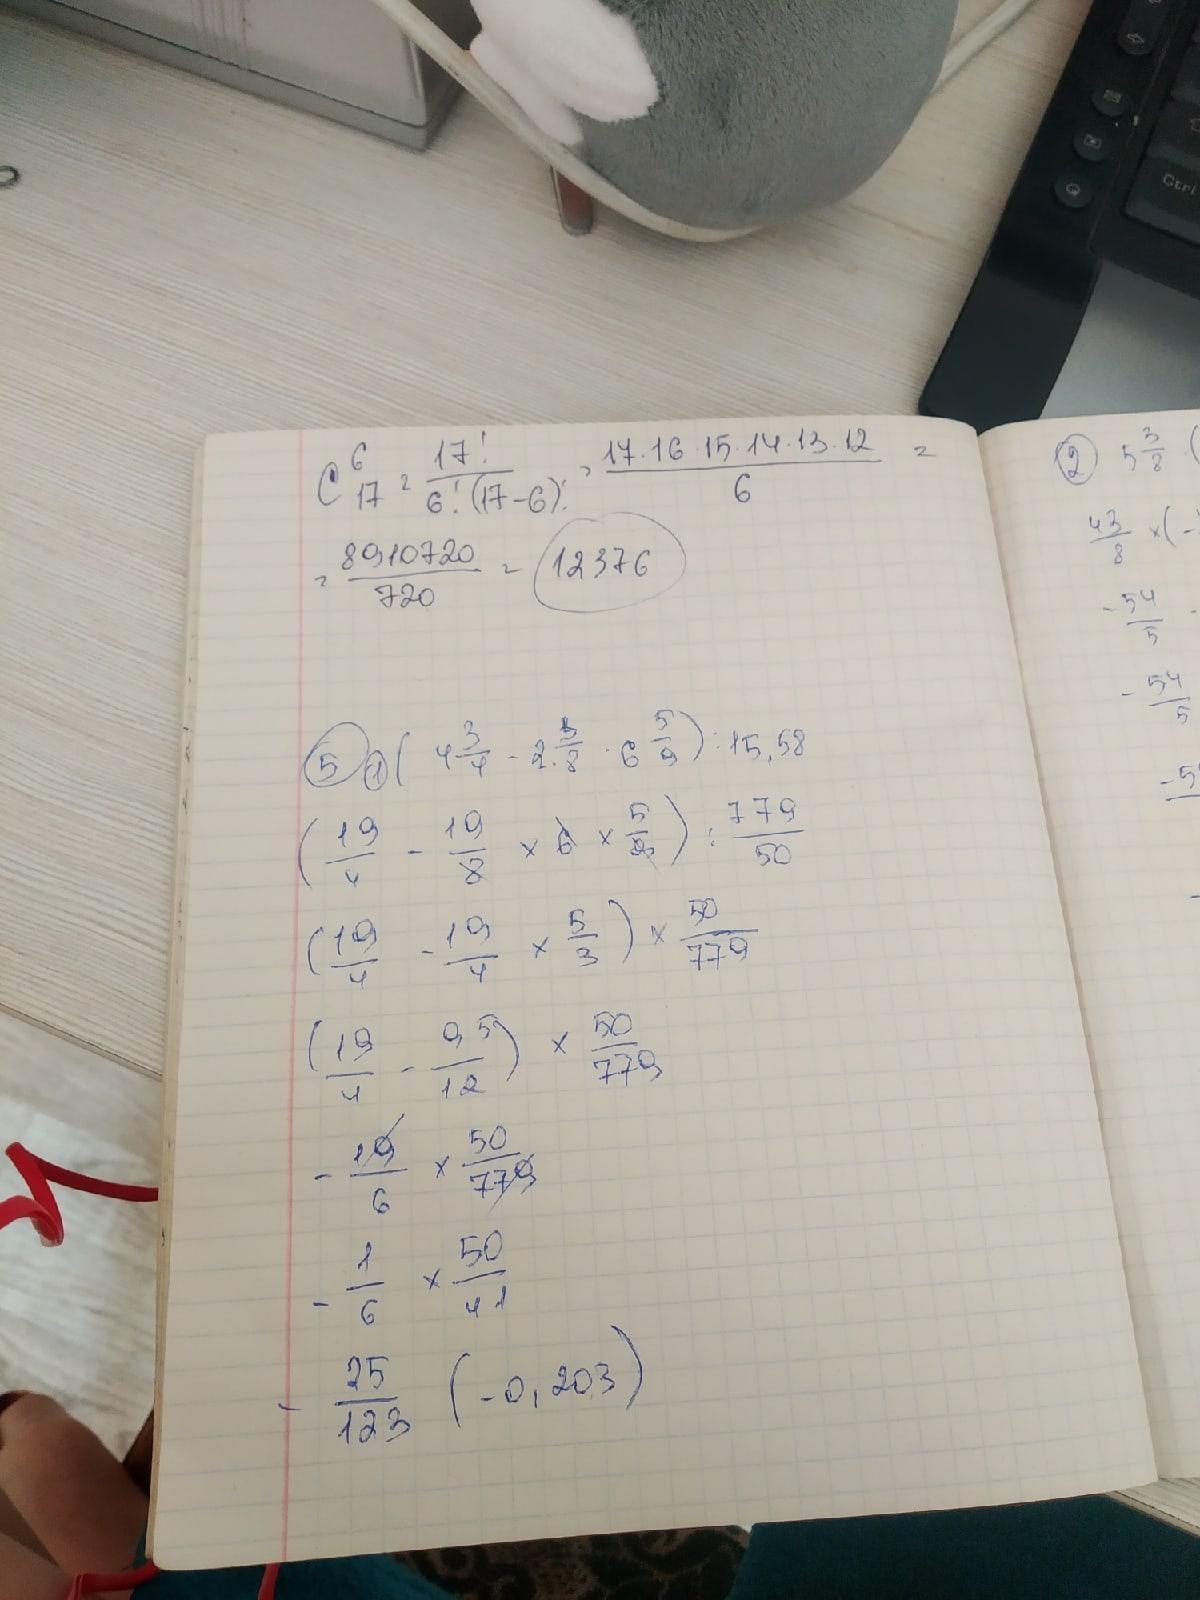 C⁶₁₇ = 17! / 6!(17-6)! = 17·16·15·14·13·12 / 6 =
= 8910720 / 720 = 12376
⑤ ① (4 3/4 - 2 3/8 · 6 5/9) : 15,58
(19/4 - 19/8 × 6 × 5/9) : 779/50
(19/4 - 19/4 × 5/3) × 50/779
(19/4 - 95/12) × 50/779
- 19/6 × 50/779
- 1/6 × 50/41
- 25/123 (-0,203)
② 5 3/8 · (
43/8 × (-
- 54/5 -
- 54/5
Ctrl